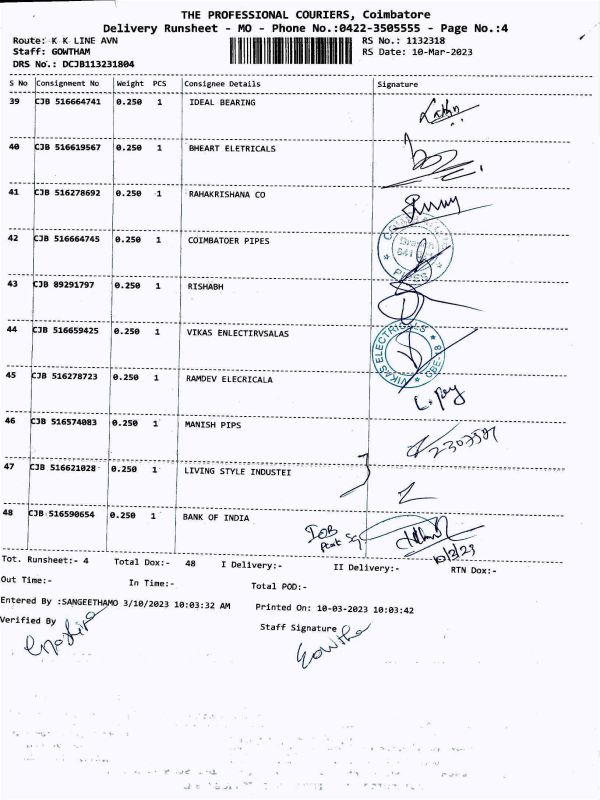 THE PROFESSIONAL COURIERS, Coimbatore
Delivery Runsheet - MO - Phone No.:0422-3505555 - Page No.:4
Route: K K LINE AVN RS No.: 1132318
Staff: GOWTHAM RS Date: 10-Mar-2023
DRS No.: DCJB113231804
S No Consignment No Weight PCS Consignee Details Signature
39 CJB 516664741 0.250 1 IDEAL BEARING
40 CJB 516619567 0.250 1 BHEART ELETRICALS
41 CJB 516278692 0.250 1 RAHAKRISHANA CO
42 CJB 516664745 0.250 1 COIMBATOER PIPES
PIPES
43 CJB 89291797 0.250 1 RISHABH
44 CJB 516659425 0.250 1 VIKAS ENLECTIRVSALAS
VIKAS ELECTRICALS ★ CBE-18 ★
45 CJB 516278723 0.250 1 RAMDEV ELECRICALA
46 CJB 516574083 0.250 1 MANISH PIPS
47 CJB 516621028 0.250 1 LIVING STYLE INDUSTEI
48 CJB 516590654 0.250 1 BANK OF INDIA
IOB
10/3/23
Tot. Runsheet:- 4 Total Dox:- 48 I Delivery:- II Delivery:- RTN Dox:-
Out Time:- In Time:- Total POD:-
Entered By :SANGEETHAMO 3/10/2023 10:03:32 AM Printed On: 10-03-2023 10:03:42
Verified By Staff Signature
Gowtha